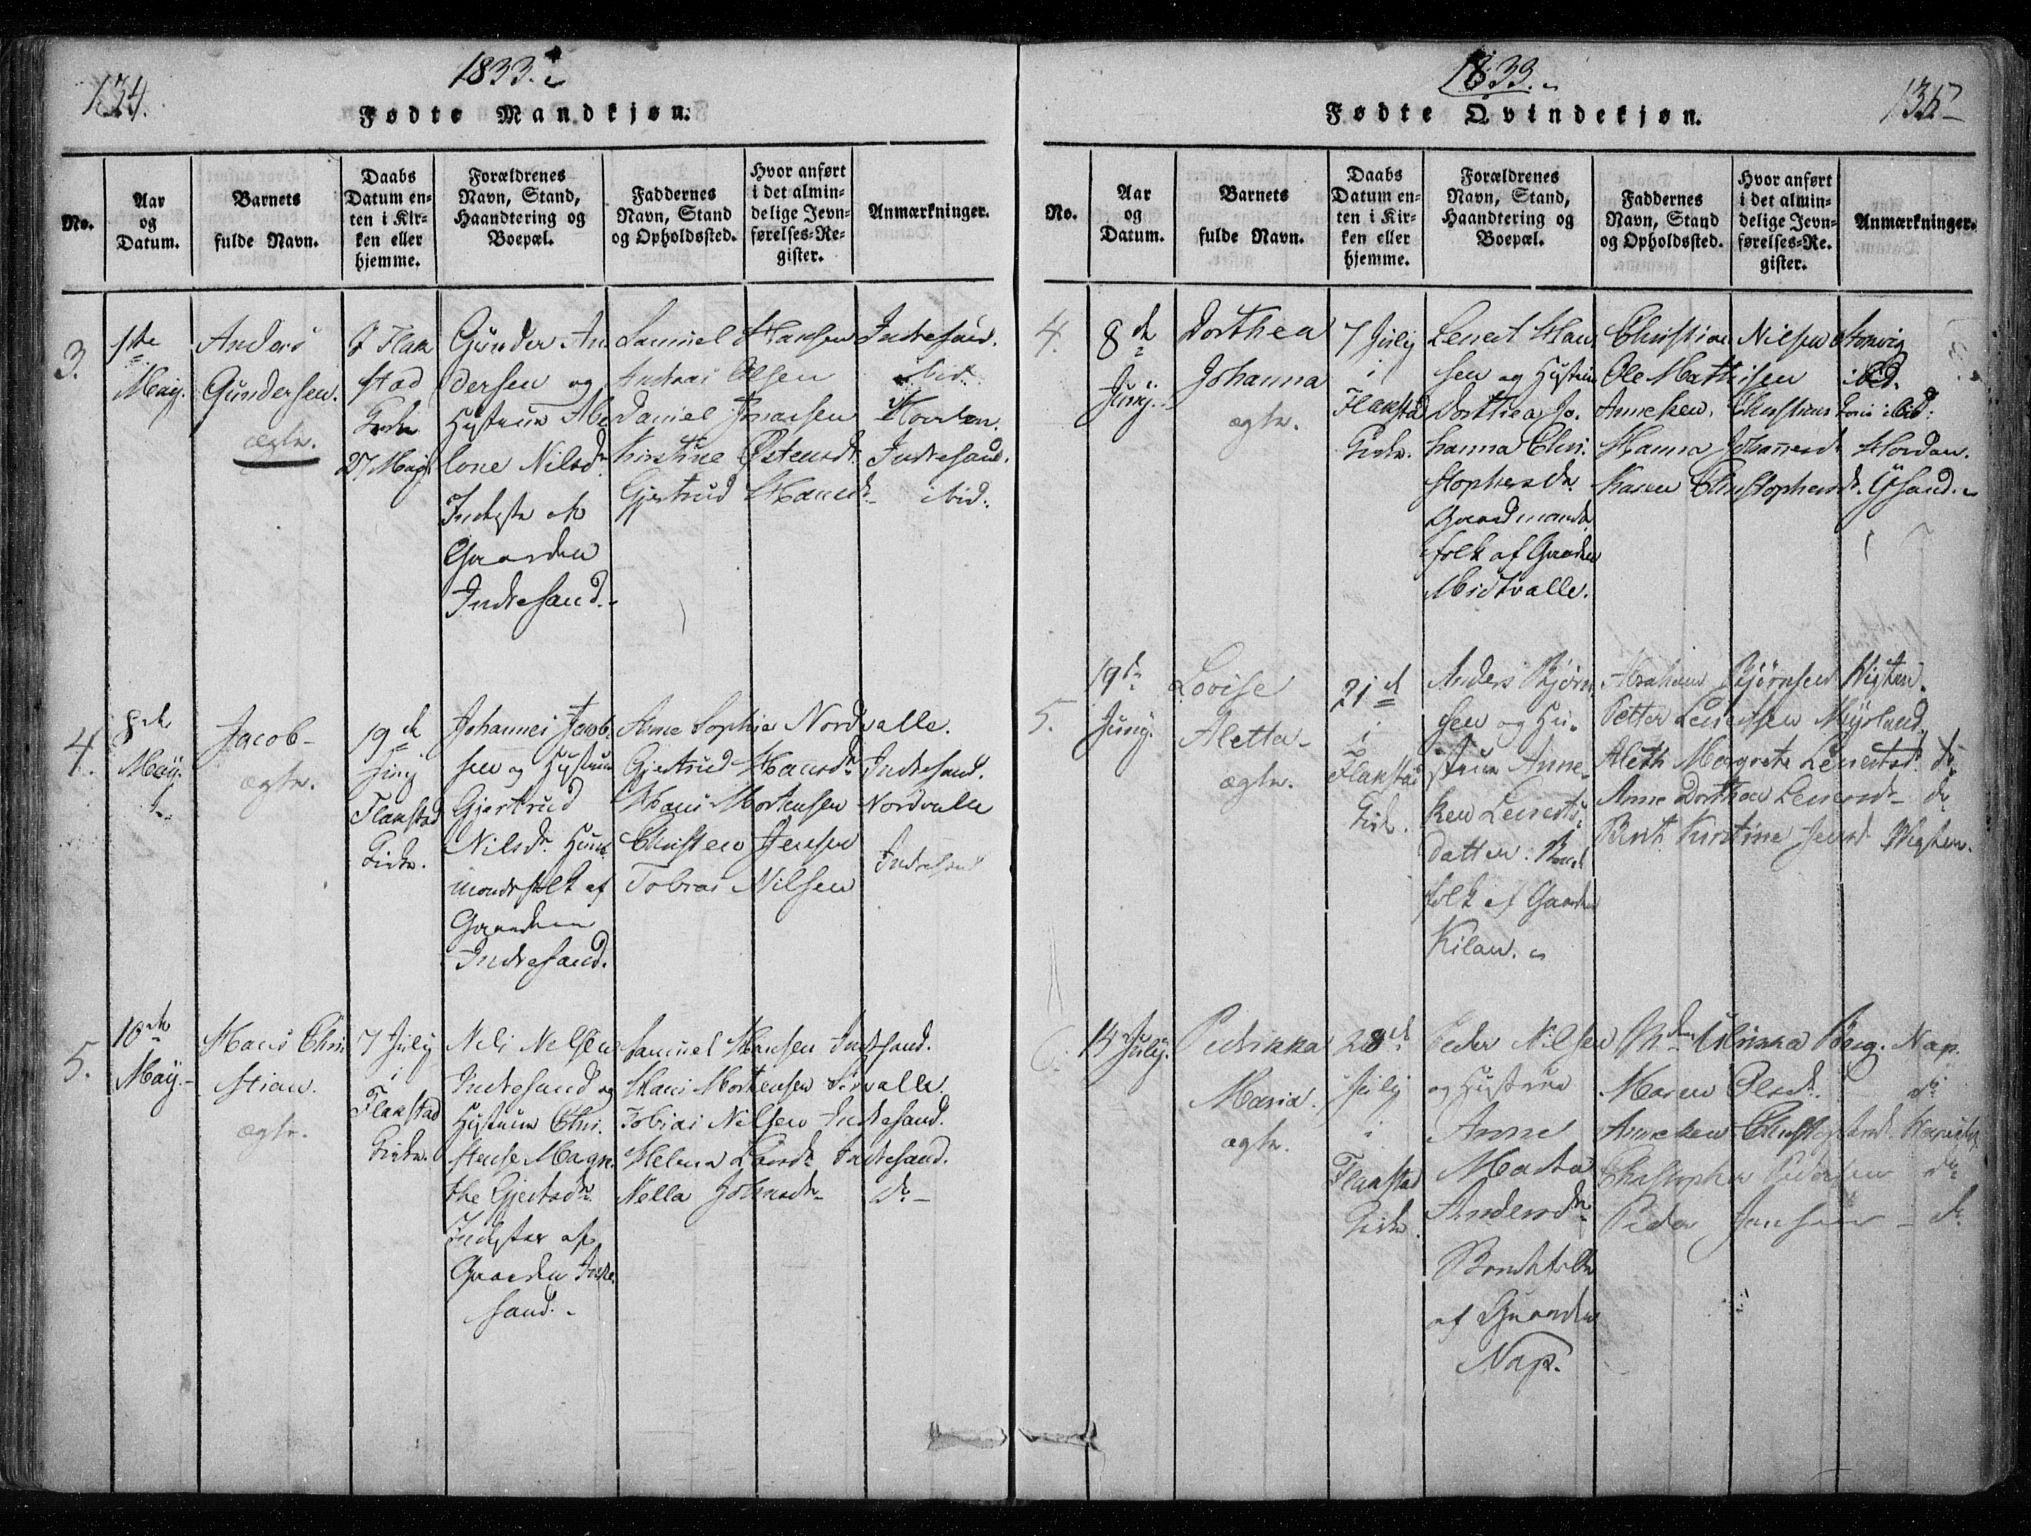 134.
1833.
Fødte Mandkjøn.
No.
Aar
og
Datum.
Barnets
fulde Navn.
Daabs
Datum en-
ten i Kir-
ken eller
hjemme.
Forældrenes
Navn, Stand,
Haandtering og
Boepæl.
Faddernes
Navn, Stand
og Opholdssted.
Hvor anført
i det almin-
delige Jevn-
førelses-Re-
gister.
Anmærkninger.
3.
1ste
May.
Anders
Gundersen.
ægte.
Flak
stad
Kirke
27 May
Gunder An
dersen og
Hustrue Abe
lone Nilsdr
Inderste
Gaarden
Indresand.
Samuel Hansen Indresand.
Andreas Olsen ibid.
Daniel
Kirstine Østensdr Indresand.
Gjertrud Hansdr ibid.
4.
8de
May.
Jacob
ægte.
19de
Juny
Flakstad
Kirke.
Johannes Jacob
sen og Hustrue
Gjertrud
Nilsdr Huus
mandsfolk af
Gaarden
Indresand.
Anne Sophia Nordvalle.
Gjertrud Hansdr Indresand.
Hans Mortensen Nordvalle
Christen Jensen
Tobias Nilsen Indresand
5.
10de
May.
Hans Chri
stian.
ægte.
7 July
i
Flakstad
Kirke.
Nels Nelsen
Indresand og
Hustrue Chri
stense Magre
the Gjertsdr.
Inderster af
Gaarden Indre
sand.
Samuel Hansen Indresand.
Hans Mortensen
Tobias Nelsen Indresand.
Helena Indresand.
Nella Johnsdr do
1833.
135
Fødte Qvindekjøn.
No.
Aar
og
Datum.
Barnets
fulde Navn.
Daabs
Datum en-
ten i Kir-
ken eller
hjemme.
Forældrenes
Navn, Stand,
Haandtering og
Boepæl.
Faddernes
Navn, Stand
og Opholdssted.
Hvor anført
i det almin-
delige Jevn-
førelses-Re-
gister.
Anmærkninger.
4.
8de
Juny.
Dorthea
Johanna
ægte.
7 July
i
Flakstad
Kirke.
Lenert Han
sen og Hustrue
Dorthea Jo.
hanna Chri.
stophersdr.
Gaardmands
folk af Gaarden
Midtvalle.
Christian Nilsen
Ole Mathisen ibid.
Anneken Christians ibid:
Hanna Johannesdr
Karen Christophersdr.
5.
19de
Juny.
Lovise
Aletta
ægte.
21de
i
Flakstad
Kirke.
Anders Bjørn
sen og Hu-
strue Anne-
ken Lenerts
datter. Bonde
folk af Gaarden
Kilan.
Abraham Bjørnsen Vigten.
Petter Lenertsen Myrland
Aleth Margrete Lenertsdr. do
Anne Dorthea Lenertsdr do
Berith Kirstine Jensdr Vigten.
14 July.
Pedrikka
Maria.
ægte.
28de
July
i
Flakstad
Kirke.
Peder Nilsen
og Hustrue
Anne
Marta
Andersdr
Bondefolk
af Gaarden
Nap.
Ulrikka Berg. Nap.
Maren Olsdr. do
Anneken Christophersdr
Christopher Pedersen do
Peder Jensen do